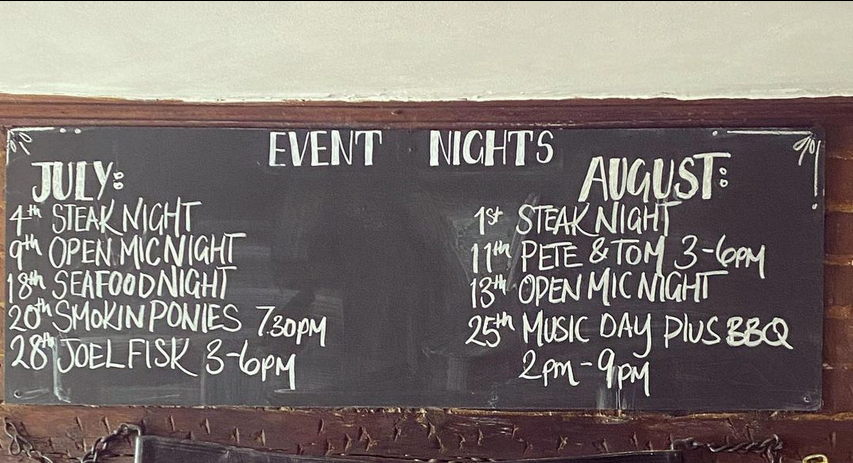 EVENT NIGHTS
JULY:
4th STEAK NIGHT
9th OPEN MIC NIGHT
18th SEAFOOD NIGHT
20th SMOKIN PONIES 7.30pm
28th JOEL FISK 3-6pm
AUGUST:
1st STEAK NIGHT
11th PETE & TOM 3-6pm
13th OPEN MIC NIGHT
25th MUSIC DAY PLUS BBQ
2pm-9pm